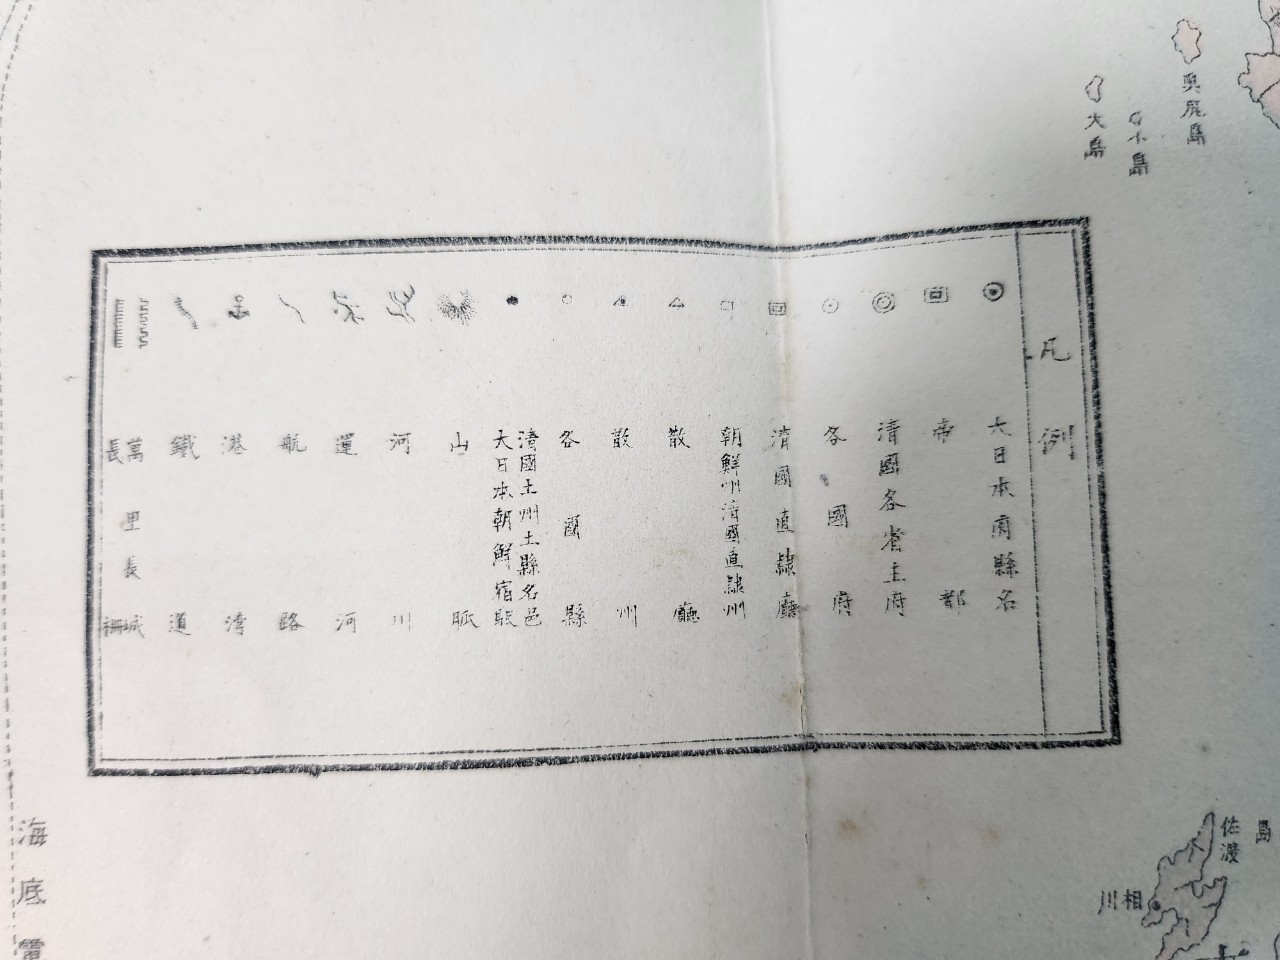 凡例
大日本府縣名
帝都
清國各省主府
各國府
清國直隷廳
朝鮮州清國直隷州
散廳
散州
各國縣
清國土州土縣名邑
大日本朝鮮宿驛
山脈
河川
運河
航路
港湾
鐵道
萬里長城
長柵
奥尻島
小島
大島
佐渡
島
相川
海底電